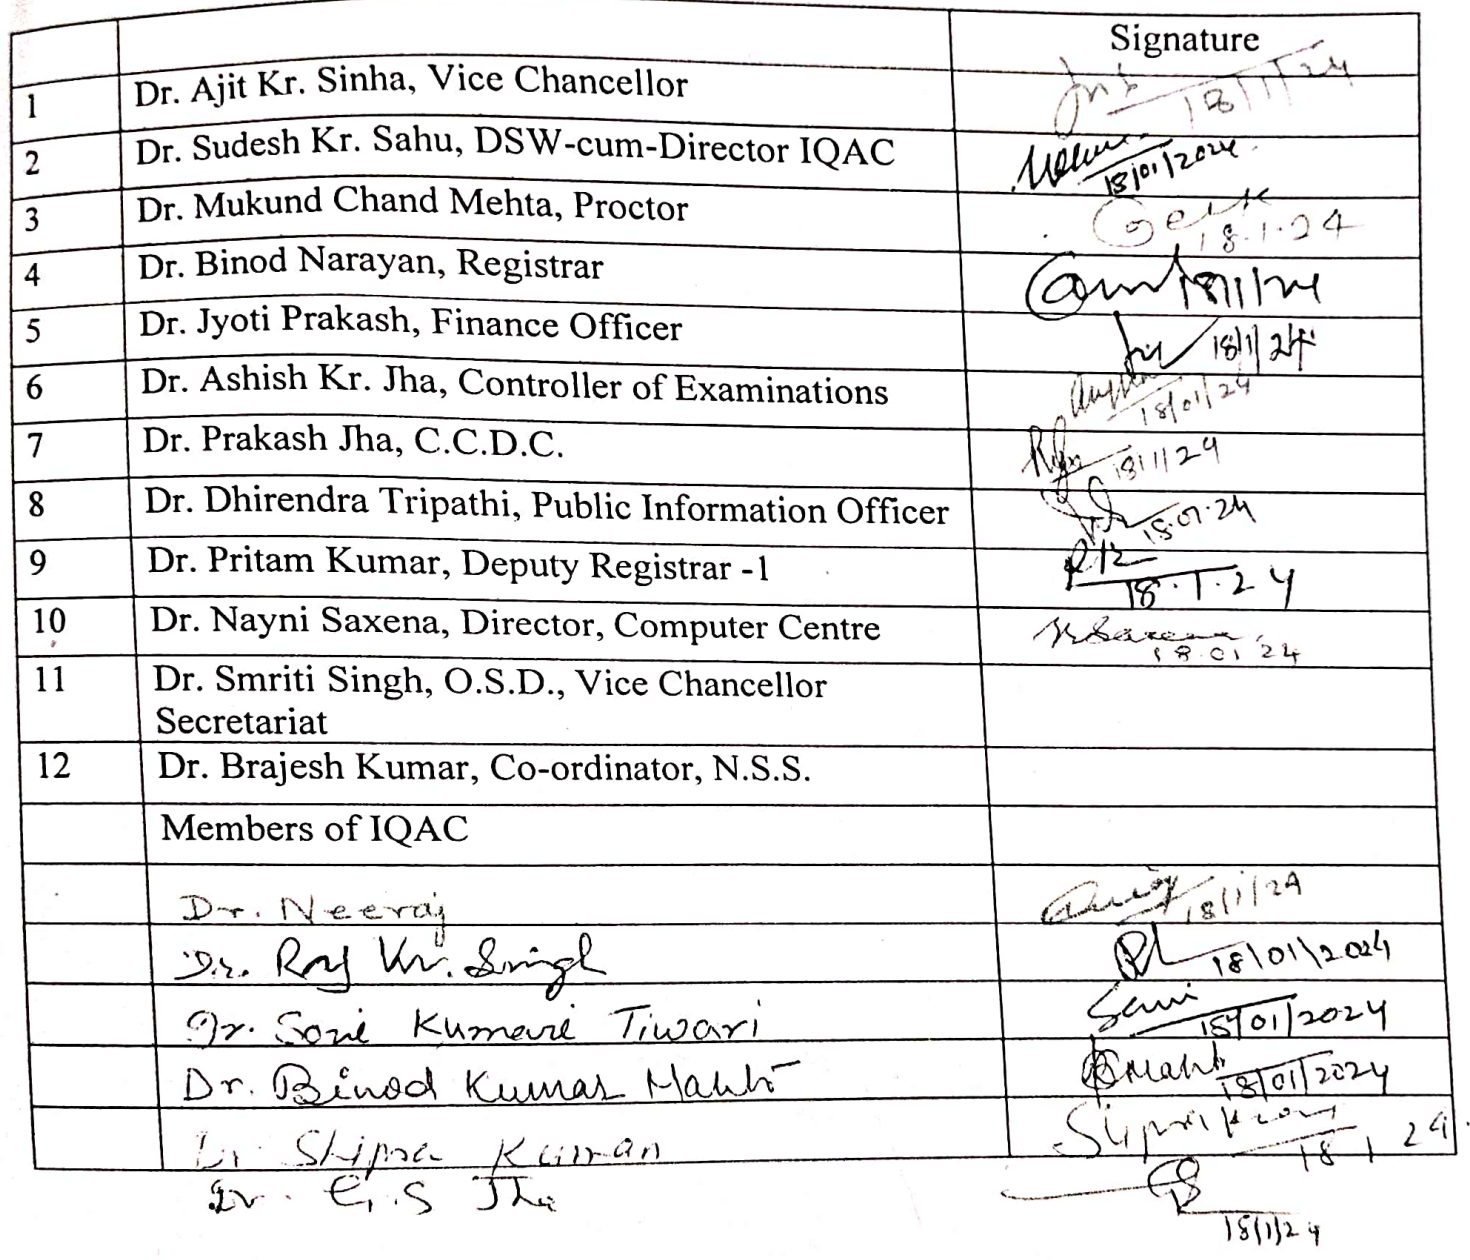 Signature
1 Dr. Ajit Kr. Sinha, Vice Chancellor 18/1/24
2 Dr. Sudesh Kr. Sahu, DSW-cum-Director IQAC 18/01/2024
3 Dr. Mukund Chand Mehta, Proctor 18.1.24
4 Dr. Binod Narayan, Registrar 18/1/24
5 Dr. Jyoti Prakash, Finance Officer 18/1/24
6 Dr. Ashish Kr. Jha, Controller of Examinations 18/01/24
7 Dr. Prakash Jha, C.C.D.C. 18/1/24
8 Dr. Dhirendra Tripathi, Public Information Officer 18.01.24
9 Dr. Pritam Kumar, Deputy Registrar -1 18.1.24
10 Dr. Nayni Saxena, Director, Computer Centre NSaxena
18.01.24
11 Dr. Smriti Singh, O.S.D., Vice Chancellor
Secretariat
12 Dr. Brajesh Kumar, Co-ordinator, N.S.S.
Members of IQAC
Dr. Neeraj 18/1/24
Dr. Raj Kr. Singh 18/01/2024
Dr. Soni Kumari Tiwari Soni 18/01/2024
Dr. Binod Kumar Mahto BMahto 18/01/2024
Dr Shipra Kumari 18 1 24
Dr. G.S Jha
18/1/24